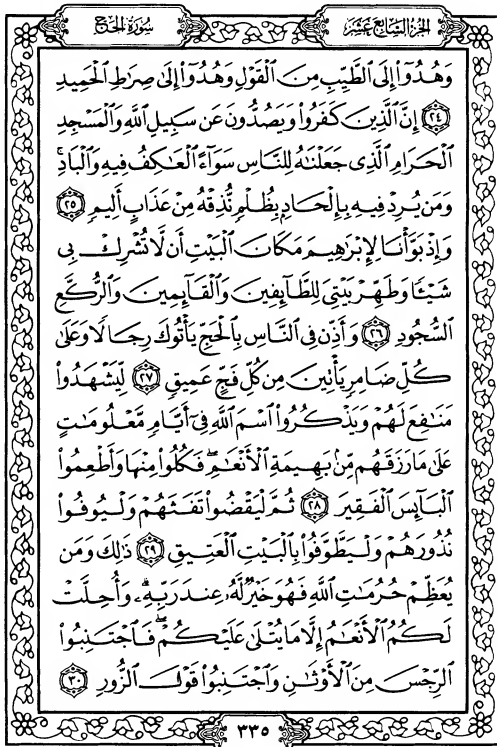 سُورَةُ الحَجِّ
الجُزْءُ السَّابِعَ عَشَرَ
وَهُدُوٓا۟ إِلَى ٱلطَّيِّبِ مِنَ ٱلْقَوْلِ وَهُدُوٓا۟ إِلَىٰ صِرَٰطِ ٱلْحَمِيدِ
﴿٢٤﴾ إِنَّ ٱلَّذِينَ كَفَرُوا۟ وَيَصُدُّونَ عَن سَبِيلِ ٱللَّهِ وَٱلْمَسْجِدِ
ٱلْحَرَامِ ٱلَّذِى جَعَلْنَٰهُ لِلنَّاسِ سَوَآءً ٱلْعَٰكِفُ فِيهِ وَٱلْبَادِ ۚ
وَمَن يُرِدْ فِيهِ بِإِلْحَادٍۭ بِظُلْمٍ نُّذِقْهُ مِنْ عَذَابٍ أَلِيمٍ ﴿٢٥﴾
وَإِذْ بَوَّأْنَا لِإِبْرَٰهِيمَ مَكَانَ ٱلْبَيْتِ أَن لَّا تُشْرِكْ بِى
شَيْـًٔا وَطَهِّرْ بَيْتِىَ لِلطَّآئِفِينَ وَٱلْقَآئِمِينَ وَٱلرُّكَّعِ
ٱلسُّجُودِ ﴿٢٦﴾ وَأَذِّن فِى ٱلنَّاسِ بِٱلْحَجِّ يَأْتُوكَ رِجَالًا وَعَلَىٰ
كُلِّ ضَامِرٍ يَأْتِينَ مِن كُلِّ فَجٍّ عَمِيقٍ ﴿٢٧﴾ لِّيَشْهَدُوا۟
مَنَٰفِعَ لَهُمْ وَيَذْكُرُوا۟ ٱسْمَ ٱللَّهِ فِىٓ أَيَّامٍ مَّعْلُومَٰتٍ
عَلَىٰ مَا رَزَقَهُم مِّنۢ بَهِيمَةِ ٱلْأَنْعَٰمِ ۖ فَكُلُوا۟ مِنْهَا وَأَطْعِمُوا۟
ٱلْبَآئِسَ ٱلْفَقِيرَ ﴿٢٨﴾ ثُمَّ لْيَقْضُوا۟ تَفَثَهُمْ وَلْيُوفُوا۟
نُذُورَهُمْ وَلْيَطَّوَّفُوا۟ بِٱلْبَيْتِ ٱلْعَتِيقِ ﴿٢٩﴾ ذَٰلِكَ وَمَن
يُعَظِّمْ حُرُمَٰتِ ٱللَّهِ فَهُوَ خَيْرٌ لَّهُۥ عِندَ رَبِّهِۦ ۗ وَأُحِلَّتْ
لَكُمُ ٱلْأَنْعَٰمُ إِلَّا مَا يُتْلَىٰ عَلَيْكُمْ ۖ فَٱجْتَنِبُوا۟
ٱلرِّجْسَ مِنَ ٱلْأَوْثَٰنِ وَٱجْتَنِبُوا۟ قَوْلَ ٱلزُّورِ ﴿٣٠﴾
٣٣٥